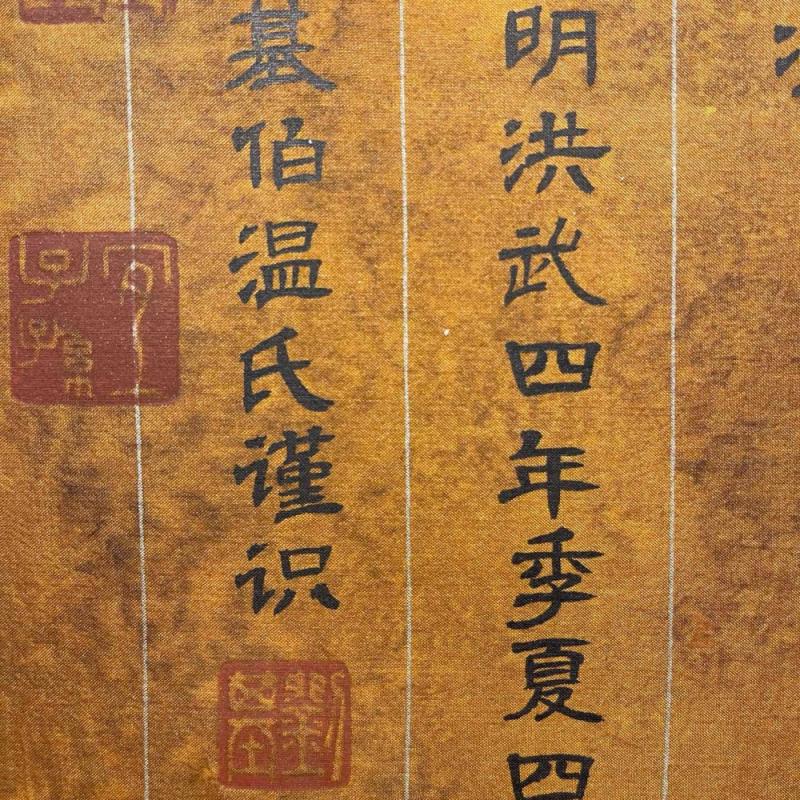 明洪武四年季夏四
基伯温氏谨识